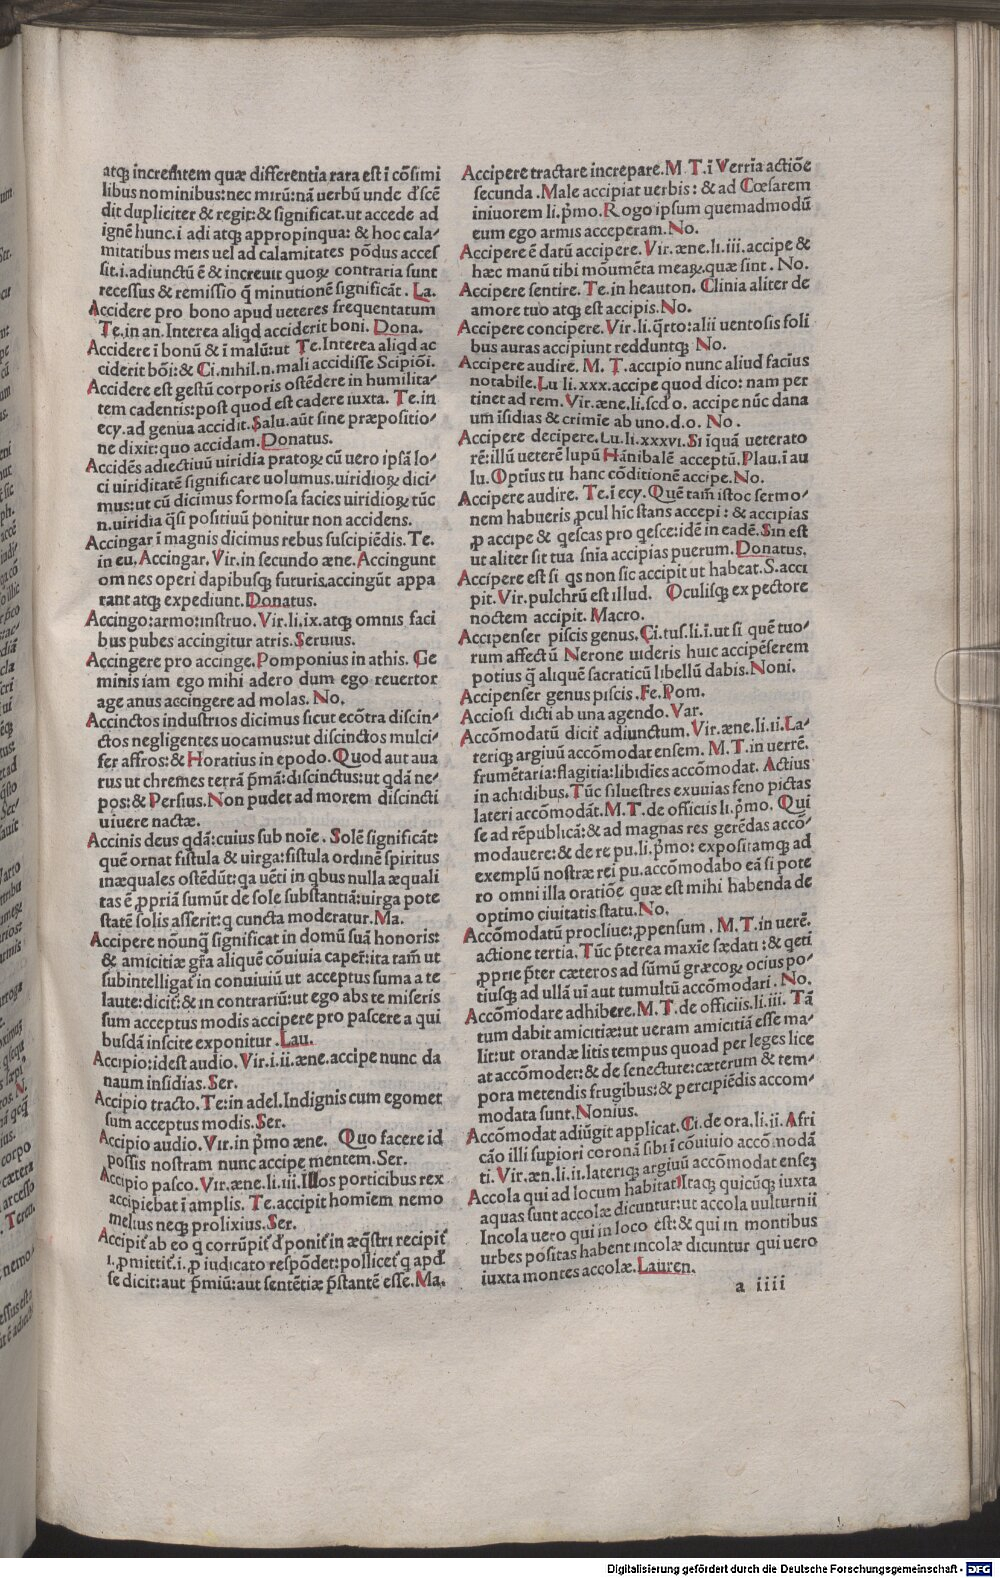 atqꝫ incremẽtem quæ differentia rara est ĩ cõsimi
libus nominibus: nec mirũ: nã uerbũ unde dʼscẽ
dit dupliciter & regit: & significat. ut accede ad
ignẽ hunc. i adi atqꝫ appropinqua: & hoc cala⸗
mitatibus meis uel ad calamitates põdus acces
sit. i. adiunctũ ẽ & increuit quoꝝ contraria sunt
recessus & remissio q̃ minutionẽ significãt. La.
Accidere pro bono apud ueteres frequentatum
Te. in an. Interea aliqd acciderit boni. Dona.
Accidere ĩ bonũ & ĩ malũ: ut Te. Interea aliqd ac
ciderit bõi: & Ci. nihil. n. mali accidisse Scipiõi.
Accidere est gestũ corporis ostẽdere in humilita⸗
tem cadentis: post quod est cadere iuxta. Te. in
ecy. ad genua accidit. Salu. aũt sine præpositio⸗
ne dixit: quo accidam. Donatus.
Accidẽs adiectiuũ uiridia pratoꝝ cũ uero ipsã lo⸗
ci uiriditatẽ significare uolumus. uiridioꝝ dici⸗
mus: ut cũ dicimus formosa facies uiridioꝝ tũc
n. uiridia q̃si positiuũ ponitur non accidens.
Accingar ĩ magnis dicimus rebus suscipiẽdis. Te.
in eu. Accingar. Vir. in secundo æne. Accingunt
om nes operi dapibusqꝫ futuris. accingũt appa
rant atqꝫ expediunt. Donatus.
Accingo: armo: instruo. Vir. li. ix. atqꝫ omnis faci
bus pubes accingitur atris. Seruius.
Accingere pro accinge. Pomponius in athis. Ge
minis iam ego mihi adero dum ego reuertor
age anus accingere ad molas. No.
Accinctos industrios dicimus sicut ecõtra discin⸗
ctos negligentes uocamus: ut discinctos mulci⸗
fer affros: & Horatius in epodo. Quod aut aua
rus ut chremes terrã p̃mã: discinctus: ut qdã ne⸗
pos: & Persius. Non pudet ad morem discincti
uiuere nactæ.
Accinis deus qdã: cuius sub noĩe. Solẽ significãt:
quẽ ornat fistula & uirga: fistula ordinẽ spiritus
inæquales ostẽdũt: qa uẽti in qbus nulla æquali
tas ẽ ꝓpriã sumũt de sole substantiã: uirga pote
statẽ solis asserit: q cuncta moderatur. Ma.
Accipere nõunq̃ significat in domũ suã honoris:
& amicitiæ gr̃a aliquẽ cõuiuia caper̃: ita tam̃ ut
subintelligat̃ in conuiuiũ ut acceptus suma a te
laute: dicit̃: & in contrariũ: ut ego abs te miseris
sum acceptus modis accipere pro pascere a qui
busdã inscite exponitur. Lau.
Accipio: idest audio. Vir. i. ii. æne. accipe nunc da
naum insidias. Ser.
Accipio tracto. Te: in adel. Indignis cum egomet
sum acceptus modis. Ser.
Accipio audio. Vir. in p̃mo æne. Quo facere id
possis nostram nunc accipe mentem. Ser.
Accipio pasco. Vir. æne. li. iii. Illos porticibus rex
accipiebat ĩ amplis. Te. accipit homiem nemo
melius neqꝫ prolixius. Ser.
Accipit̃ ab eo q corrũpit̃ dʼ ponit̃ in æq̃stri recipit̃
i. ꝓmittit̃. i. ꝓ iudicato respõdet: pollicet̃ q apd̃
se dicit: aut p̃miũ: aut sentẽtiæ p̃stantẽ esse. Ma.
Accipere tractare increpare. M. T. ĩ Verria actiõe
secunda. Male accipiat uerbis: & ad Cœsarem
iniuorem li. p̃mo. Rogo ipsum quemadmodũ
eum ego armis acceperam. No.
Accipere ẽ datũ accipere. Vir. æne. li. iii. accipe &
hæc manũ tibi mõumẽta meaꝝ. quæ sint. No.
Accipere sentire. Te. in heauton. Clinia aliter de
amore tuo atqꝫ est accipis. No.
Accipere concipere. Vir. li. q̃rto: alii uentosis foli
bus auras accipiunt redduntqꝫ No.
Accipere audire. M. T. accipio nunc aliud facius
notabile. Lu li. xxx. accipe quod dico: nam per
tinet ad rem. Vir. æne. li. scd̃o. accipe nũc dana
um ĩsidias & crimĩe ab uno. d. o. No.
Accipere decipere. Lu. li. xxxvi. Si iquã ueterato
rẽ: illũ ueterẽ lupũ Hãnibalẽ acceptũ. Plau. ĩ au
lu. Optius tu hanc cõditionẽ accipe. No.
Accipere audire. Te. ĩ ecy. Quẽ tam̃ istoc sermo⸗
nem habueris ꝓcul hic stans accepi: & accipias
ꝓ accipe & qescas pro qesce: idẽ in eadẽ. Sin est
ut aliter sit tua s̃nia accipias puerum. Donatus.
Accipere est si qs non sic accipit ut habeat. S. acci
pit. Vir. pulchrũ est illud. Oculisqꝫ ex pectore
noctem accipit. Macro.
Accipenser piscis genus. Ci. tus. li. ĩ. ut si quẽ tuo⸗
rum affectũ Nerone uideris huic accipẽserem
potius q̃ aliquẽ sacraticũ libellũ dabis. Noni.
Accipenser genus piscis. Fe. Pom.
Acciosi dicti ab una agendo. Var.
Accõmodatũ dicit̃ adiunctum. Vir. æne. li. ii. La⸗
teriqꝫ argiuũ accõmodat ensem. M. T. in uerrẽ.
frumẽtaria: flagitia: libidies accõmodat. Actius
in ach: dibus. Tũc siluestres exuuias feno pictas
lateri accõmodãt. M. T. de officiis li. p̃mo. Qui
se ad rẽpublicã: & ad magnas res gerẽdas accõ⸗
modauere: & de re pu. li. p̃mo: expositamqꝫ ad
exemplũ nostræ rei pu. accõmodabo eã si pote
ro omni illa oratiõe quæ est mihi habenda de
optimo ciuitatis statu. No.
Accõmodatũ procliue: ꝓpensum. M. T. in uerẽ.
actione tertia. Tũc p̃terea maxĩe sædati: & qeti
ꝓprie p̃ter cæteros ad sũmũ græcoꝝ ocius po⸗
tiusqꝫ ad ullã uĩ aut tumultũ accõmodari. No.
Accõmodare adhibere. M. T. de officiis. li. iii. Tã
tum dabit amicitiæ: ut ueram amicitiã esse ma⸗
lit: ut orandæ litis tempus quoad per leges lice
at accõmodet: & de senectute: cæterum & tem⸗
pora metendis frugibus: & percipiẽdis accom⸗
modata sunt. Nonius.
Accõmodat adiũgit applicat. Ci. de ora. li. ii. Afri
cão illi supiori coronã sibi ĩ cõuiuio accõmodã
ti. Vir. æn. li. ii. lateriqꝫ argiuũ accõmodat enseꝫ
Accola qui ad locum habitat: Itaqꝫ quicũqꝫ iuxta
aquas sunt accolæ dicuntur: ut accola uulturnii
Incola uero qui in loco est: & qui in montibus
urbes positas habent incolæ dicuntur qui uero
iuxta montes accolæ. Lauren.
a iiii
Digitalisierung gefördert durch die Deutsche Forschungsgemeinschaft - DFG